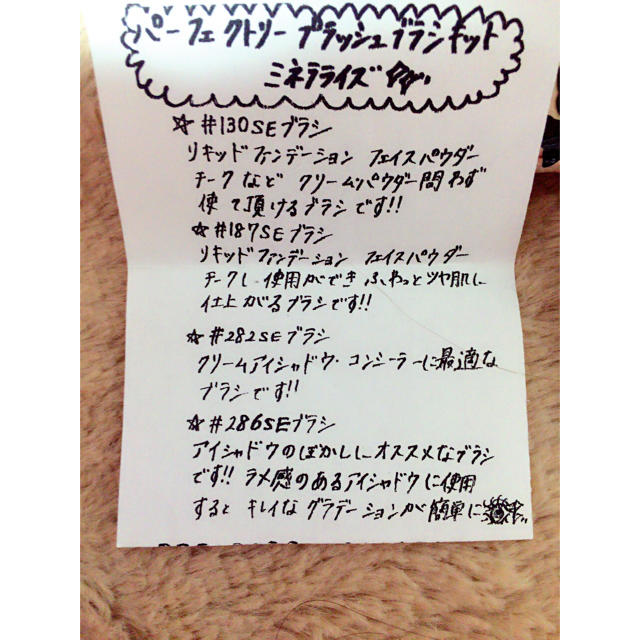 パーフェクトリー プラッシュブラシキット
ミネラライズ
☆ #130SEブラシ
リキッドファンデーション フェイスパウダー
チークなど クリームパウダー問わず
使って頂けるブラシです!!
☆ #187SEブラシ
リキッドファンデーション フェイスパウダー
チークに使用ができ ふわっとツヤ肌に
仕上がるブラシです!!
☆ #282SEブラシ
クリームアイシャドウ・コンシーラーに最適な
ブラシです!!
☆ #286SEブラシ
アイシャドウのぼかしにオススメなブラシ
です!! ラメ感のあるアイシャドウに使用
すると キレイな グラデーションが簡単に